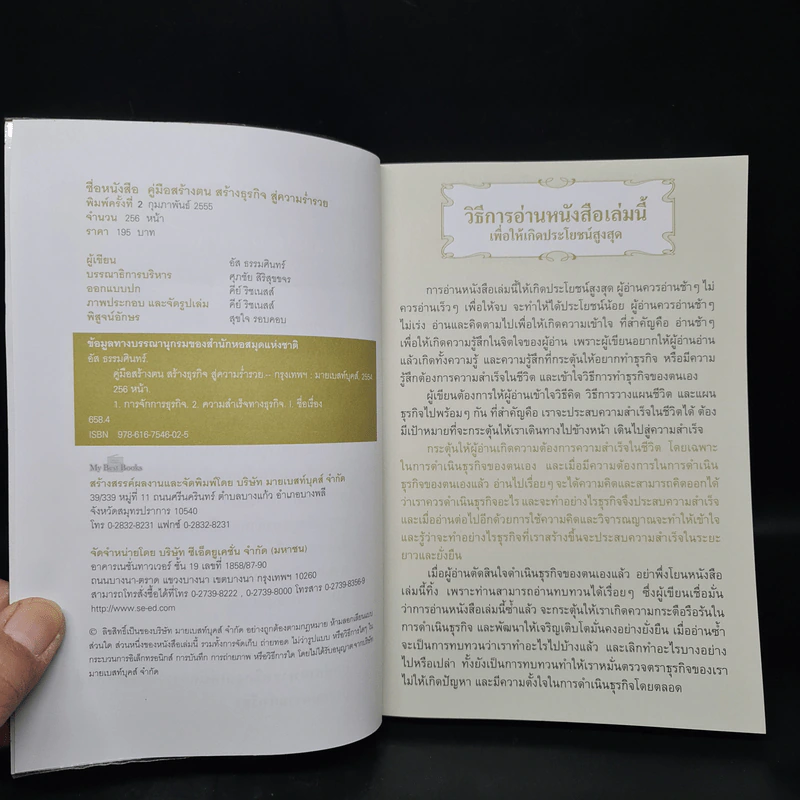 ชื่อหนังสือ คู่มือสร้างตน สร้างธุรกิจ สู่ความร่ำรวย
พิมพ์ครั้งที่ 2 กุมภาพันธ์ 2555
จำนวน 256 หน้า
ราคา 195 บาท
ผู้เขียน อัส ธรรมศินทร์
บรรณาธิการบริหาร ศุภชัย สิริสุขขจร
ออกแบบปก คีย์ ริชเนสส์
ภาพประกอบ และจัดรูปเล่ม คีย์ ริชเนสส์
พิสูจน์อักษร สุขใจ รอบคอบ
ข้อมูลทางบรรณานุกรมของสำนักหอสมุดแห่งชาติ
อัส ธรรมศินทร์.
คู่มือสร้างตน สร้างธุรกิจ สู่ความร่ำรวย.-- กรุงเทพฯ : มายเบสท์บุคส์, 2554.
256 หน้า.
1. การจัดการธุรกิจ. 2. ความสำเร็จทางธุรกิจ. I. ชื่อเรื่อง
658.4
ISBN 978-616-7546-02-5
My Best Books
สร้างสรรค์ผลงานและจัดพิมพ์โดย บริษัท มายเบสท์บุคส์ จำกัด
39/339 หมู่ที่ 11 ถนนศรีนครินทร์ ตำบลบางแก้ว อำเภอบางพลี
จังหวัดสมุทรปราการ 10540
โทร 0-2832-8231 แฟกซ์ 0-2832-8231
จัดจำหน่ายโดย บริษัท ซีเอ็ดยูเคชั่น จำกัด (มหาชน)
อาคารเนชั่นทาวเวอร์ ชั้น 19 เลขที่ 1858/87-90
ถนนบางนา-ตราด แขวงบางนา เขตบางนา กรุงเทพฯ 10260
สามารถโทรสั่งซื้อได้ที่โทร 0-2739-8222 , 0-2739-8000 โทรสาร 0-2739-8356-9
http://www.se-ed.com
© ลิขสิทธิ์เป็นของบริษัท มายเบสท์บุคส์ จำกัด อย่างถูกต้องตามกฎหมาย ห้ามลอกเลียนแบบ
ส่วนใด ส่วนหนึ่งของหนังสือเล่มนี้ รวมทั้งการจัดเก็บ ถ่ายทอด ไม่ว่ารูปแบบ หรือวิธีการใดๆ ใน
กระบวนการอิเล็กทรอนิกส์ การบันทึก การถ่ายภาพ หรือวิธีการใด โดยไม่ได้รับอนุญาตจากบริษัท
มายเบสท์บุคส์ จำกัด
วิธีการอ่านหนังสือเล่มนี้
เพื่อให้เกิดประโยชน์สูงสุด
การอ่านหนังสือเล่มนี้ให้เกิดประโยชน์สูงสุด ผู้อ่านควรอ่านช้าๆ ไม่
ควรอ่านเร็วๆ เพื่อให้จบ จะทำให้ได้ประโยชน์น้อย ผู้อ่านควรอ่านช้าๆ
ไม่เร่ง อ่านและคิดตามไปเพื่อให้เกิดความเข้าใจ ที่สำคัญคือ อ่านช้าๆ
เพื่อให้เกิดความรู้สึกในจิตใจของผู้อ่าน เพราะผู้เขียนอยากให้ผู้อ่านอ่าน
แล้วเกิดทั้งความรู้ และความรู้สึกที่กระตุ้นให้อยากทำธุรกิจ หรือมีความ
รู้สึกต้องการความสำเร็จในชีวิต และเข้าใจวิธีการทำธุรกิจของตนเอง
ผู้เขียนต้องการให้เข้าใจวิธีคิด วิธีการวางแผนชีวิต และแผน
ธุรกิจไปพร้อมๆ กัน ที่สำคัญคือ เราจะประสบความสำเร็จในชีวิตได้ ต้อง
มีเป้าหมายที่จะกระตุ้นให้เราเดินทางไปข้างหน้า เดินไปสู่ความสำเร็จ
กระตุ้นให้ผู้อ่านเกิดความต้องการความสำเร็จในชีวิต โดยเฉพาะ
ในการดำเนินธุรกิจของตนเอง และเมื่อมีความต้องการในการดำเนิน
ธุรกิจของตนเองแล้ว อ่านไปเรื่อยๆ จะได้ความคิดและสามารถคิดออกได้
ว่าเราควรดำเนินธุรกิจอะไร และจะทำอย่างไรธุรกิจจึงประสบความสำเร็จ
และเมื่ออ่านต่อไปอีกด้วยการใช้ความคิดและวิจารณญาณจะทำให้เข้าใจ
และรู้ว่าจะทำอย่างไรธุรกิจที่เราสร้างขึ้นจะประสบความสำเร็จในระยะ
ยาวและยั่งยืน
เมื่อผู้อ่านตัดสินใจดำเนินธุรกิจของตนเองแล้ว อย่าพึ่งโยนหนังสือ
เล่มนี้ทิ้ง เพราะท่านสามารถอ่านทบทวนได้เรื่อยๆ ซึ่งผู้เขียนเชื่อมั่น
ว่าการอ่านหนังสือเล่มนี้ซ้ำแล้วซ้ำ จะกระตุ้นให้เราเกิดความกระตือรือร้นใน
การดำเนินธุรกิจ และพัฒนาให้เจริญเติบโตมั่นคงอย่างยั่งยืน เมื่ออ่านซ้ำ
จะเป็นการทบทวนว่าเราทำอะไรไปบ้างแล้ว และเลิกทำอะไรบางอย่าง
ไปหรือเปล่า ทั้งยังเป็นการทบทวนทำให้เราหมั่นตรวจตราธุรกิจของเรา
ไม่ให้เกิดปัญหา และมีความตั้งใจในการดำเนินธุรกิจโดยตลอด